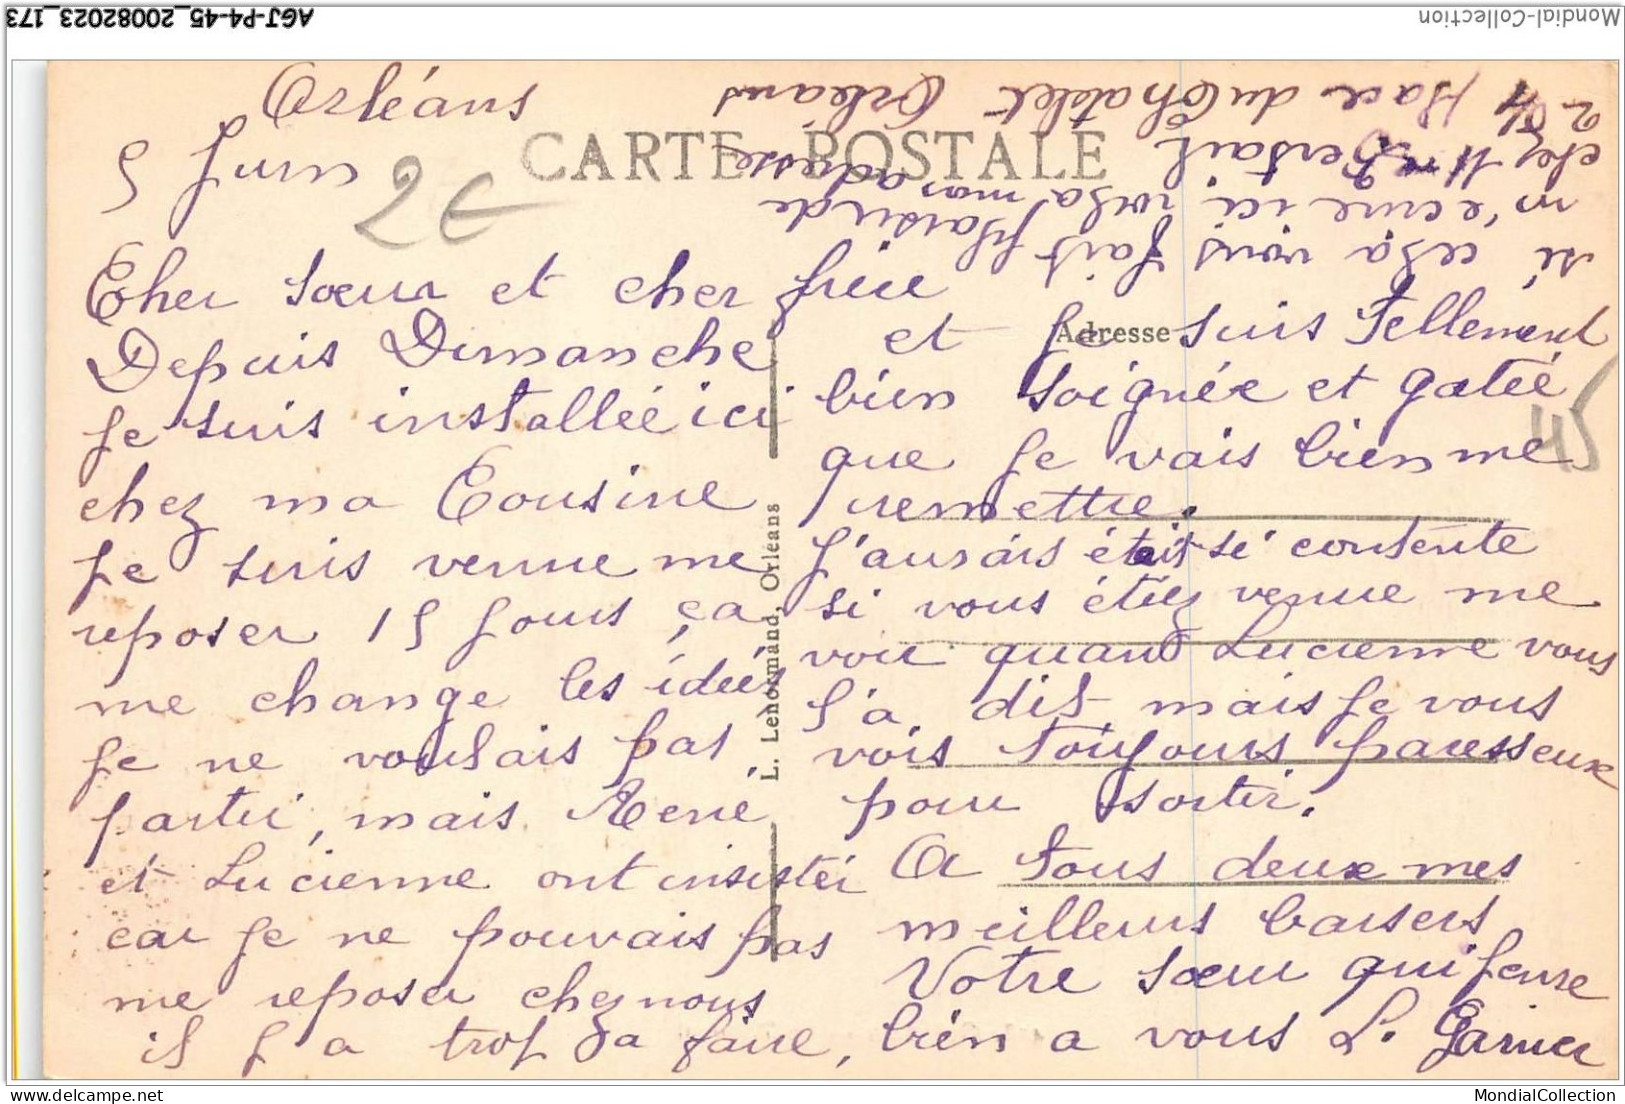 AGJ-P4-45_20082023_173
Mondial-Collection
Orléans
5 Juin
2€
CARTE POSTALE
Cher sœur et cher frère
Depuis Dimanche
Je suis installée ici
chez ma Cousine
Je suis venue me
reposer 15 Jours, ça
me change les idées
Je ne voulais pas
partir, mais René
et Lucienne ont insister
car Je ne pouvais pas
me reposer chez nous
il J a trop a faire,
L. Lenormand, Orléans
Adresse
et Je suis Tellement
bien soignée et gatée
que Je vais bien me
remettre.
J'aurais était si contente
si vous étiez venue me
voir quand Lucienne vous
l'a dit mais Je vous
vois toujours paresseux
pour sortir.
A tous deux mes
meilleurs baisers
Votre sœur qui pense
bien a vous L. Garnier
45
si cela vous fait plaisir de
m'ecrire ici voila mon adresse
chez Mme
24 Place du Chatelet Orléans
MondialCollection